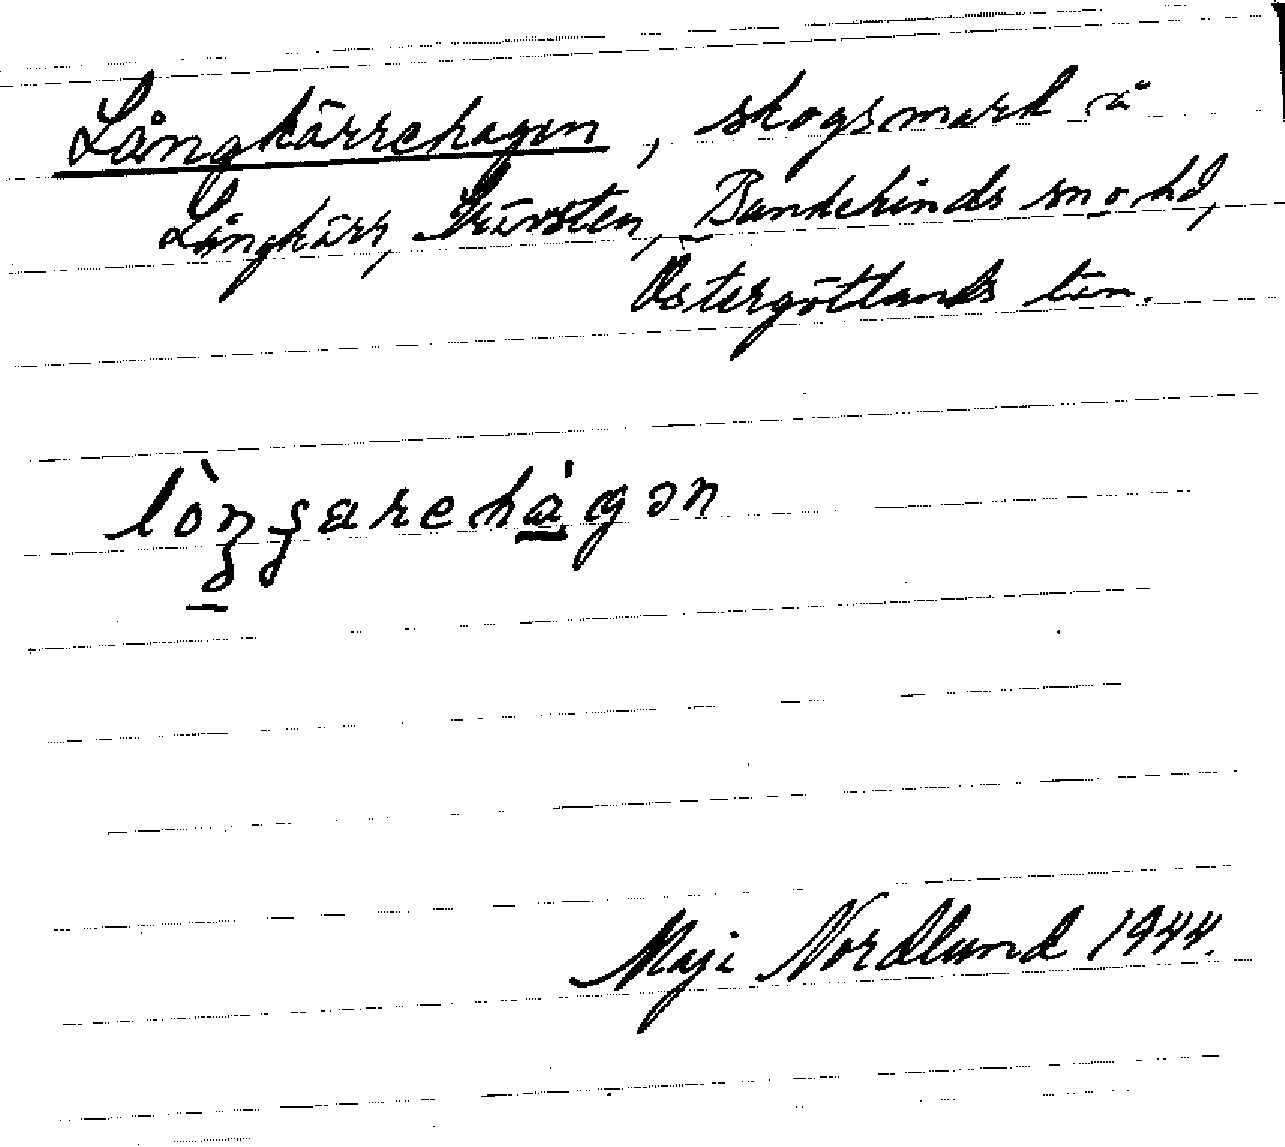 Långkärrehagen, skogsmark å
Långkärr, Grävsten, Bankekinds sn o hd,
Östergötlands län.
Maji Nordlund 1944.